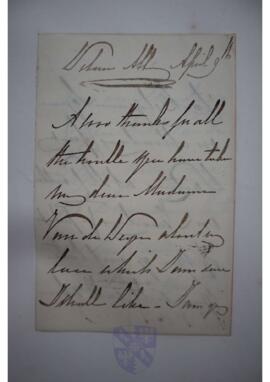 April 9th
A 1000 thanks for all
the trouble you have taken
my dear Madame
Van de Weyer about my
lace which I am sure
I shall like - I am